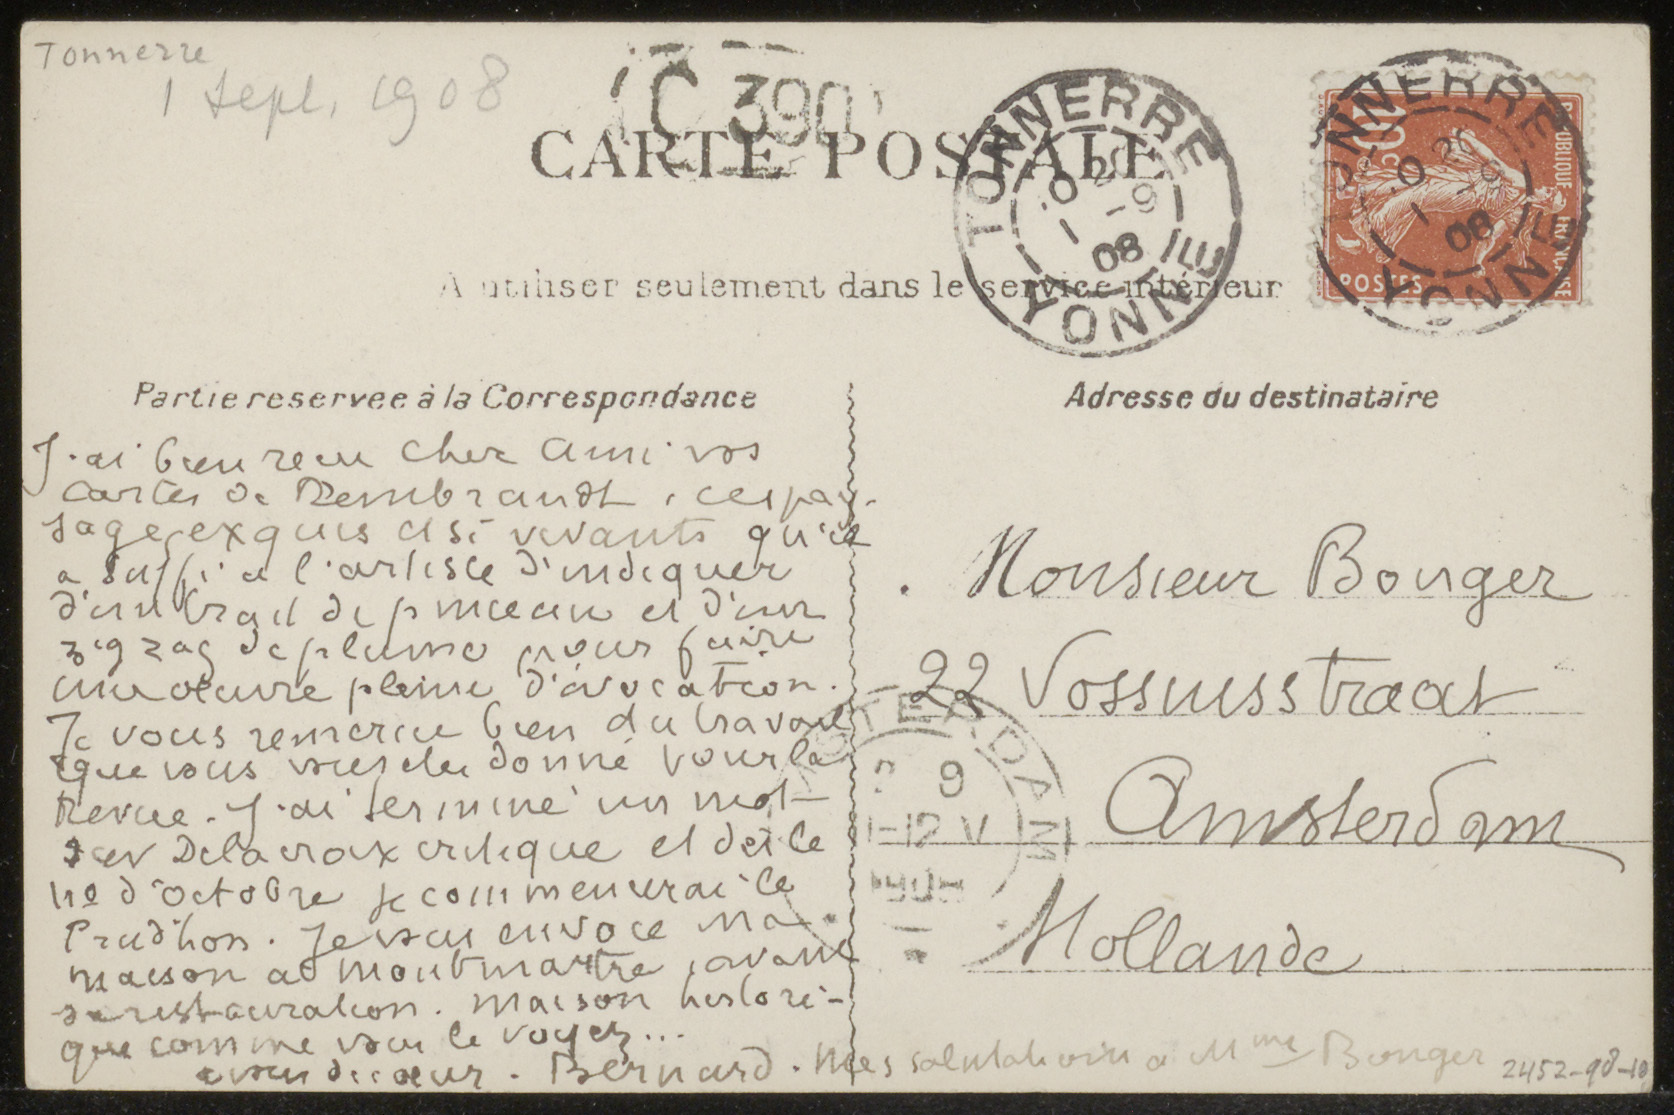 Tonnerre
1 Sept. 1908
C 390
CARTE POSTALE
TONNERRE
20
1 -9
08
YONNE
TONNERRE
1 -9
08
YONNE
10
RÉPUBLIQUE FRANÇAISE
POSTES
A utiliser seulement dans le service intérieur
Partie reservee à la Correspondance
Adresse du destinataire
J'ai bien recu cher ami vos
cartes de Rembrandt, ces pay-
sages exquis et si vivants qu'il
a suffi a l'artiste d'indiquer
d'un trait de pinceau et d'un
zig zag de plume pour faire
une œuvre pleine d'évocation.
Je vous remercie bien du travail
que vous vous etes donné pour la
Revue. J'ai terminé un mot
sur Delacroix critique et des le
no d'octobre je commencerai le
Prudhon. Je vous envoie ma
maison a montmartre, avant
sa restauration. maison histori-
que comme vous le voyez...
a vous de cœur. Bernard. mes salutations a Mme Bonger
Monsieur Bonger
22 Vossiusstraat
Amsterdam
Hollande
AMSTERDAM
2 9
11-12 V
2452-98-10